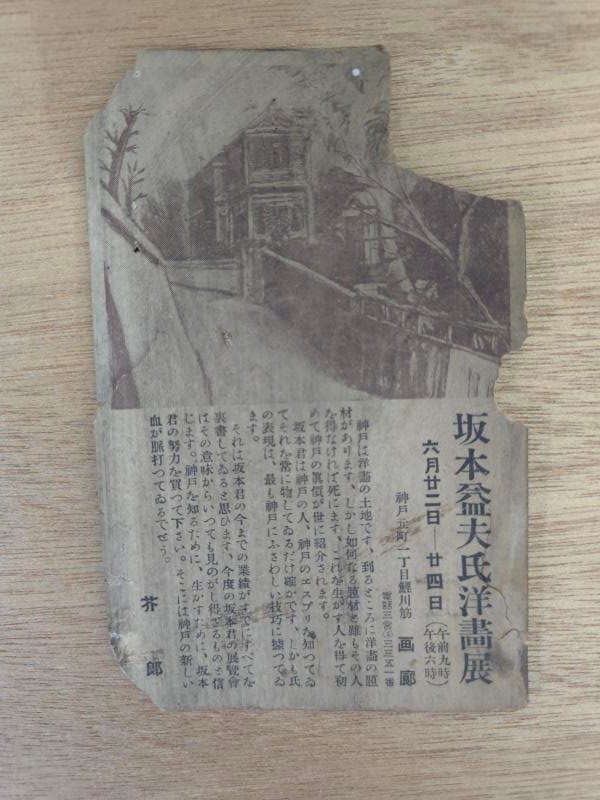 坂本益夫氏洋畫展
六月廿二日―廿四日(午前九時 午後六時)
神戸元町一丁目鯉川筋 画廊
電話三宮(4)三三五一番
神戸は洋畵の土地です、到るところに洋畵の題
材があります、しかし如何なる題材と雖もその人
を得なければ死にます、これを生かす人を得て初
めて神戸の眞價が世に紹介されます。
坂本君は神戸の人、神戸のエスプリを知つてゐ
てそれを常に物してゐるだけ確かです、しかも氏
の表現は、最も神戸にふさわしい技巧に據つてゐ
ます。
それは坂本君の今までの業績がすでにすべてを
裏書してゐると思ひます、今度の坂本君の展覽會
はその意味からいつても見のがし得ざるものと信
じます。神戸を知るために、生かすために、坂本
君の努力を買つて下さい。そこには神戸の新しい
血が脈打つてゐるでせう。
芥郎